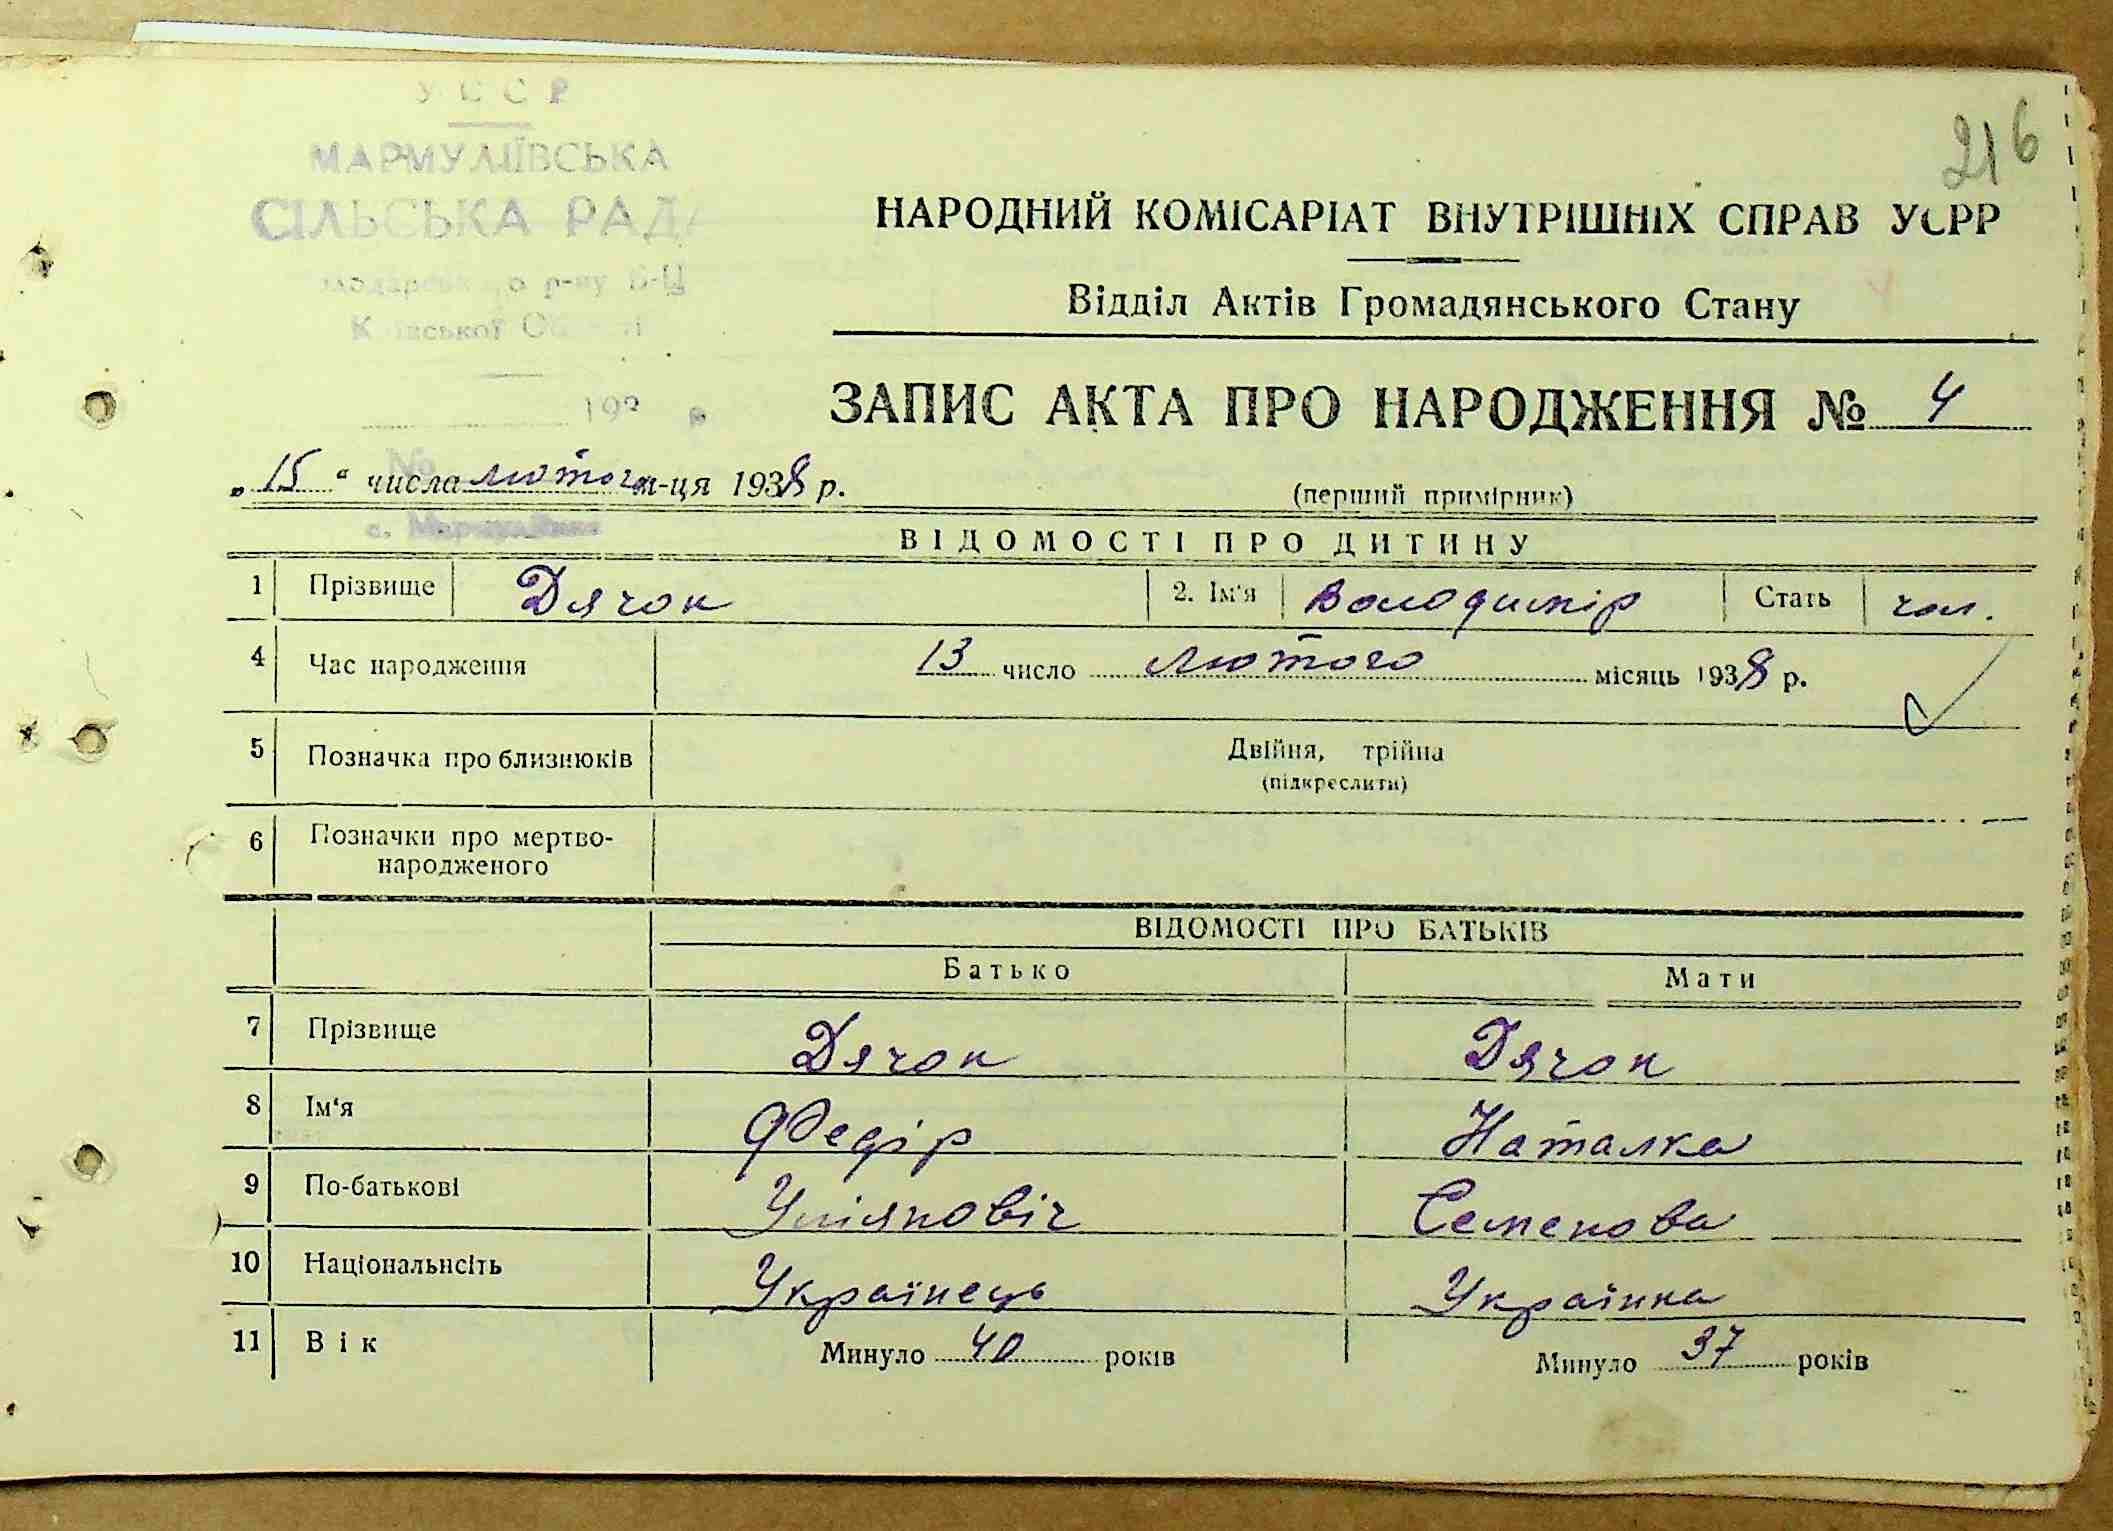 УССР
МАРМУЛІЇВСЬКА
СІЛЬСЬКА РАДА
р-ну Б-Ц
Київської Області
216
НАРОДНИЙ КОМІСАРІАТ ВНУТРІШНІХ СПРАВ УСРР
Відділ Актів Громадянського Стану
ЗАПИС АКТА ПРО НАРОДЖЕННЯ № 4
192 р
№
„15“ числа лютого м-ця 1938 р.
(перший примірник)
ВІДОМОСТІ ПРО ДИТИНУ
1 Прізвище Дячок 2. Ім'я Володимір Стать чол.
4 Час народження 13 число лютого місяць 1938 р.
5 Позначка про близнюків Двійня, трійна
(підкреслити)
6 Позначки про мертво-
народженого
ВІДОМОСТІ ПРО БАТЬКІВ
Батько Мати
7 Прізвище Дячок Дячок
8 Ім‘я Федір Наталка
9 По-батькові Семенова
10 Національнсіть Українець Українка
11 Вік Минуло 40 років Минуло 37 років